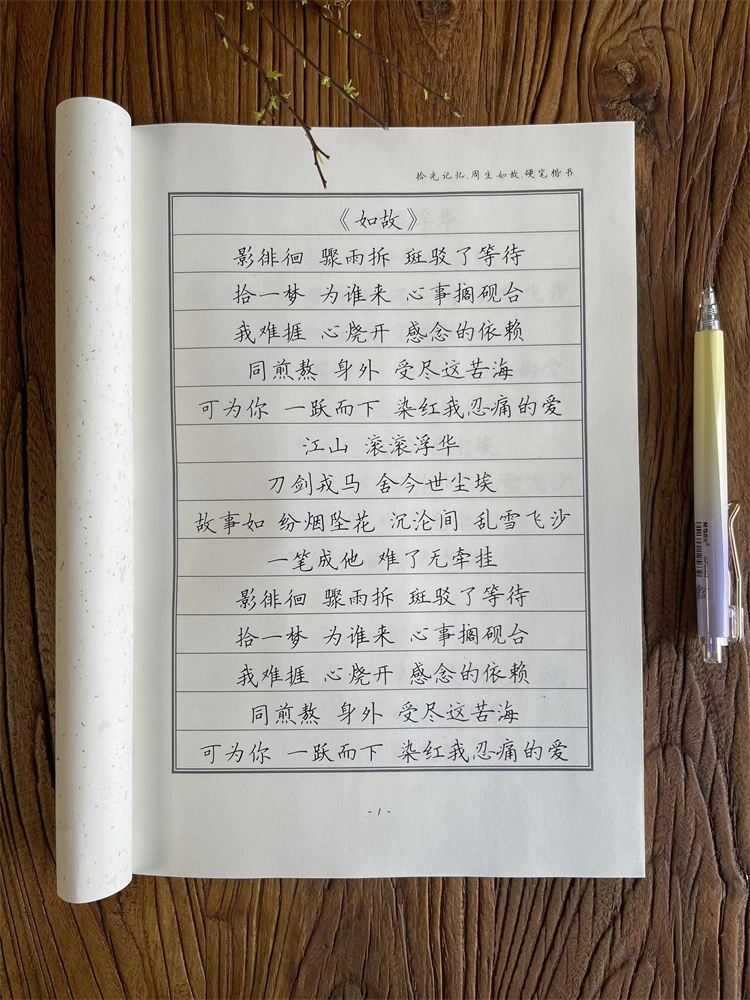 拾光记忆.周生如故.硬笔楷书
《如故》
影徘徊 骤雨拆 斑驳了等待
拾一梦 为谁来 心事搁砚台
我难捱 心烧开 感念的依赖
同煎熬 身外 受尽这苦海
可为你 一跃而下 染红我忍痛的爱
江山 滚滚浮华
刀剑戎马 舍今世尘埃
故事如 纷烟坠花 沉沦间 乱雪飞沙
一笔成他 难了无牵挂
影徘徊 骤雨拆 斑驳了等待
拾一梦 为谁来 心事搁砚台
我难捱 心烧开 感念的依赖
同煎熬 身外 受尽这苦海
可为你 一跃而下 染红我忍痛的爱
- 1 -